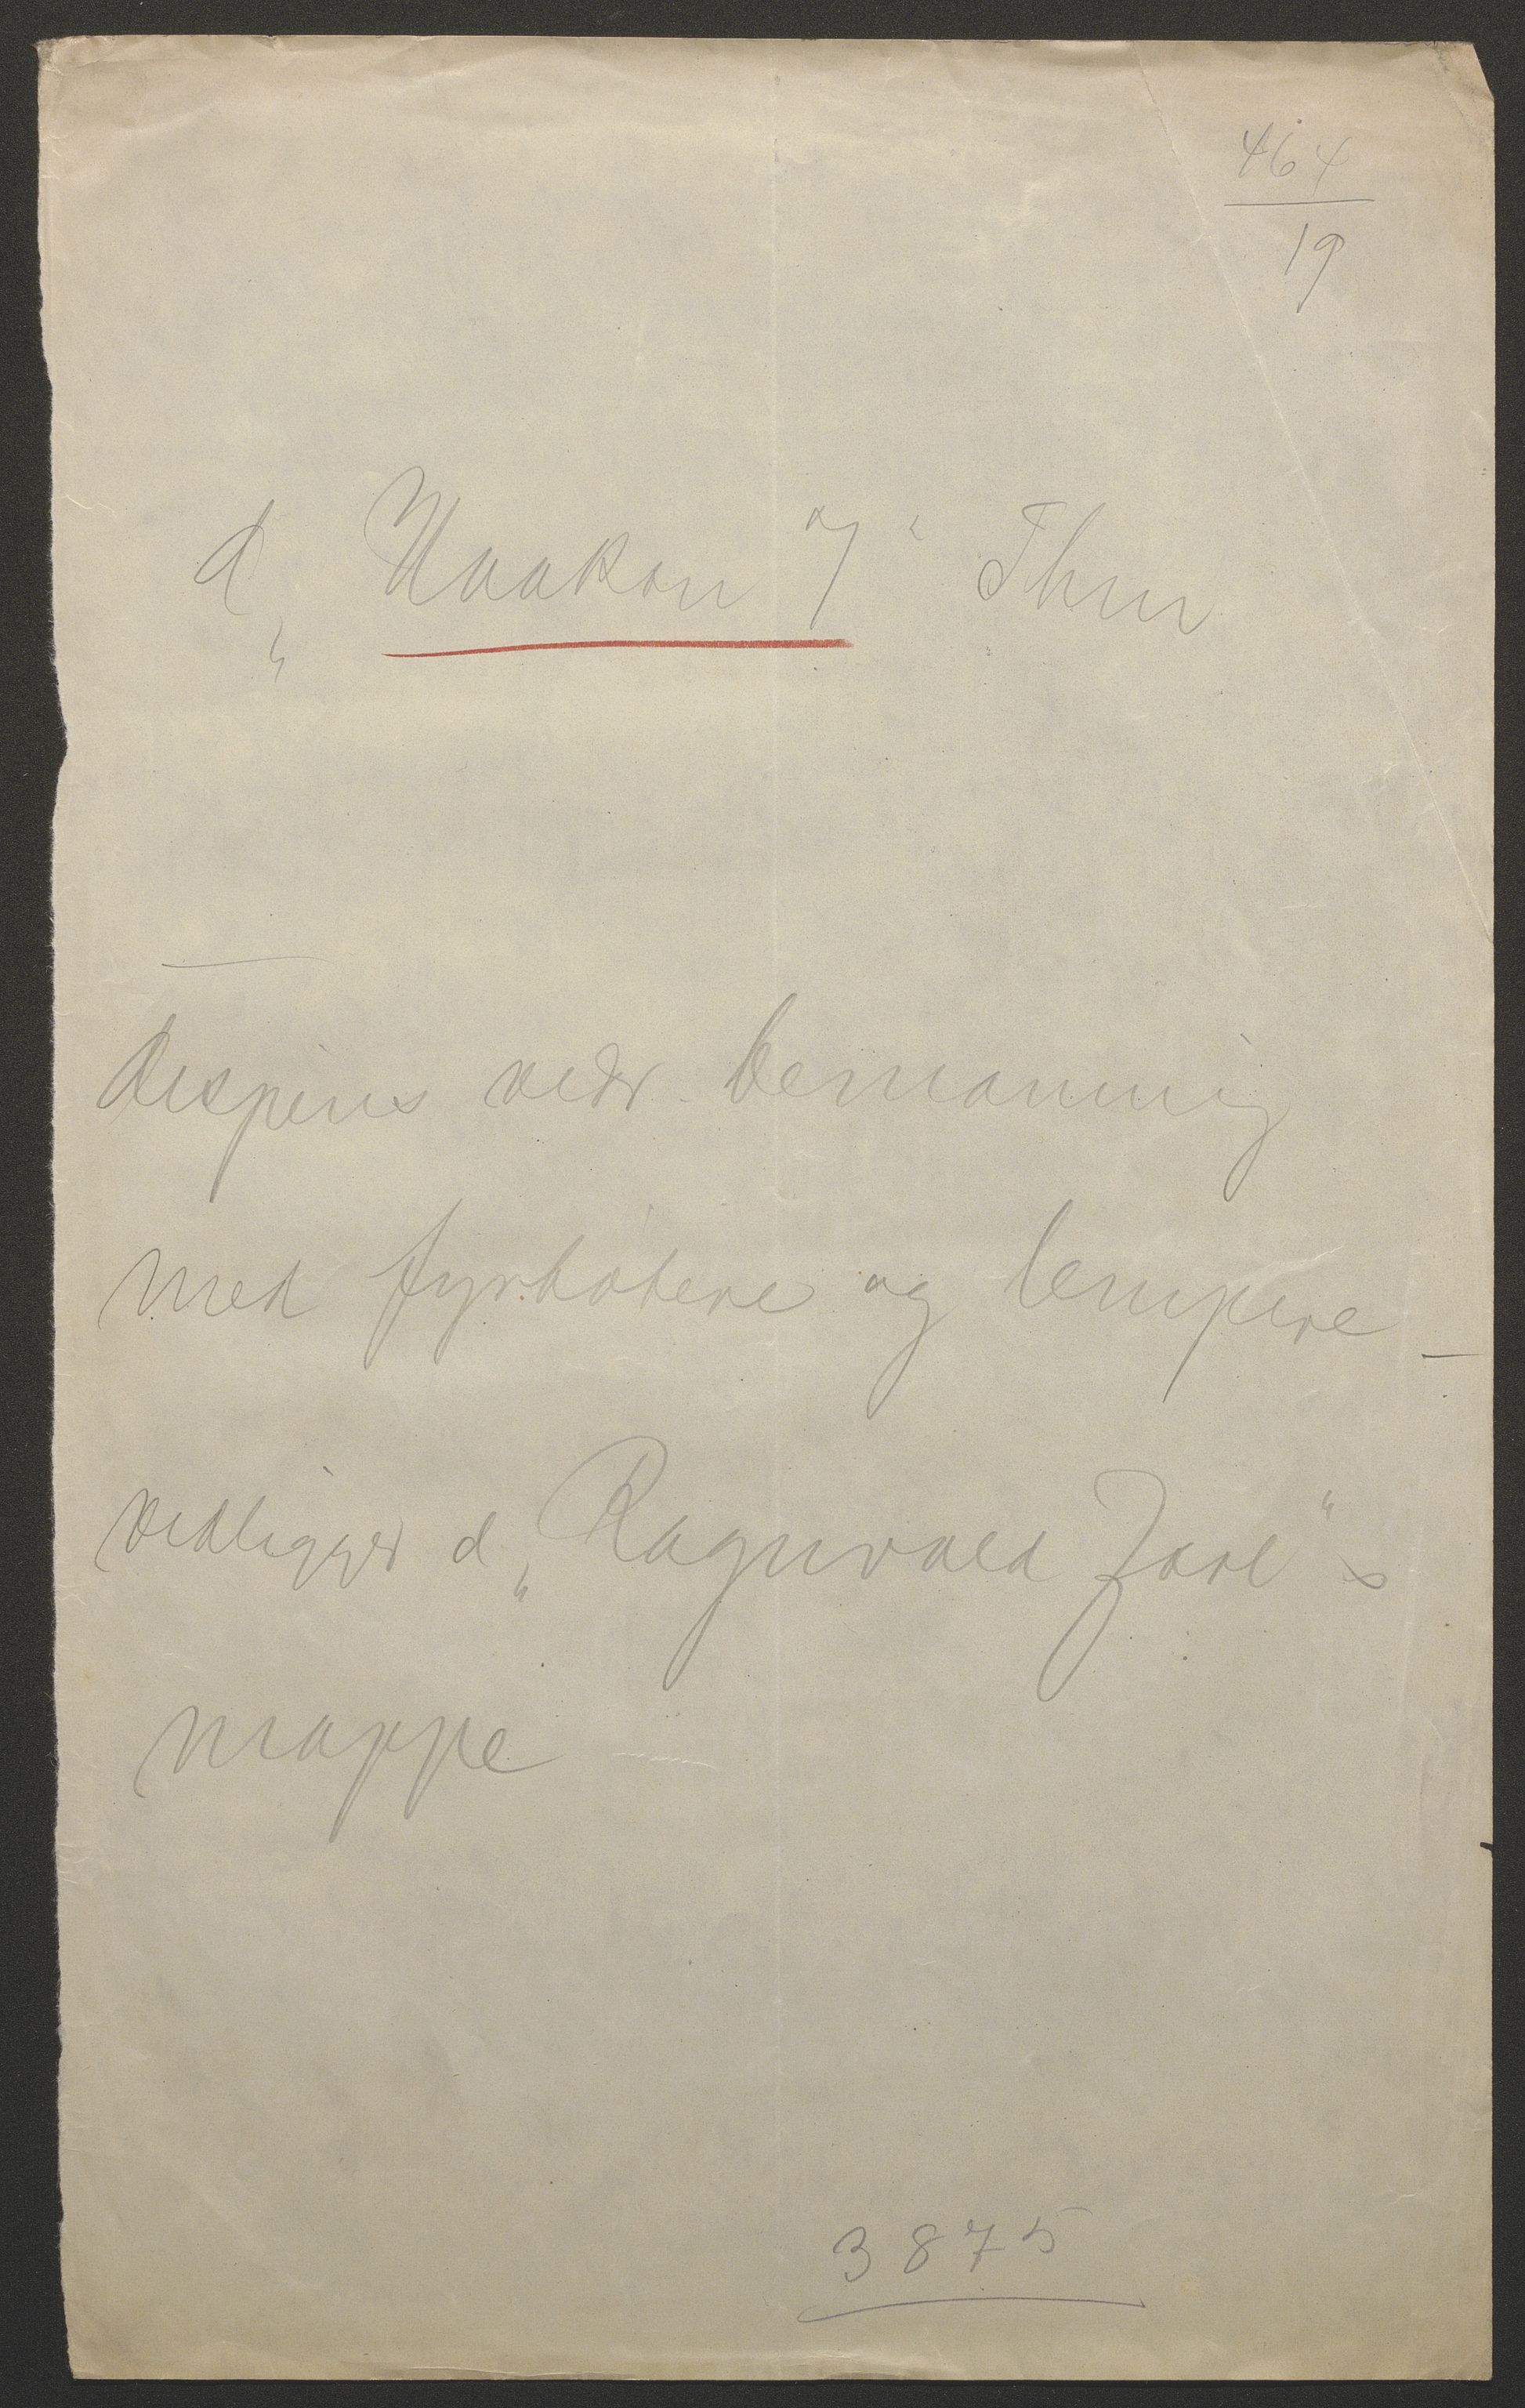 464
19
d „Haakon 7“ Thm
Dispens vedr. bemanning
med fyrbøtere og lempere
vedligger d „Ragnvald Jarl“s
mappe
3875